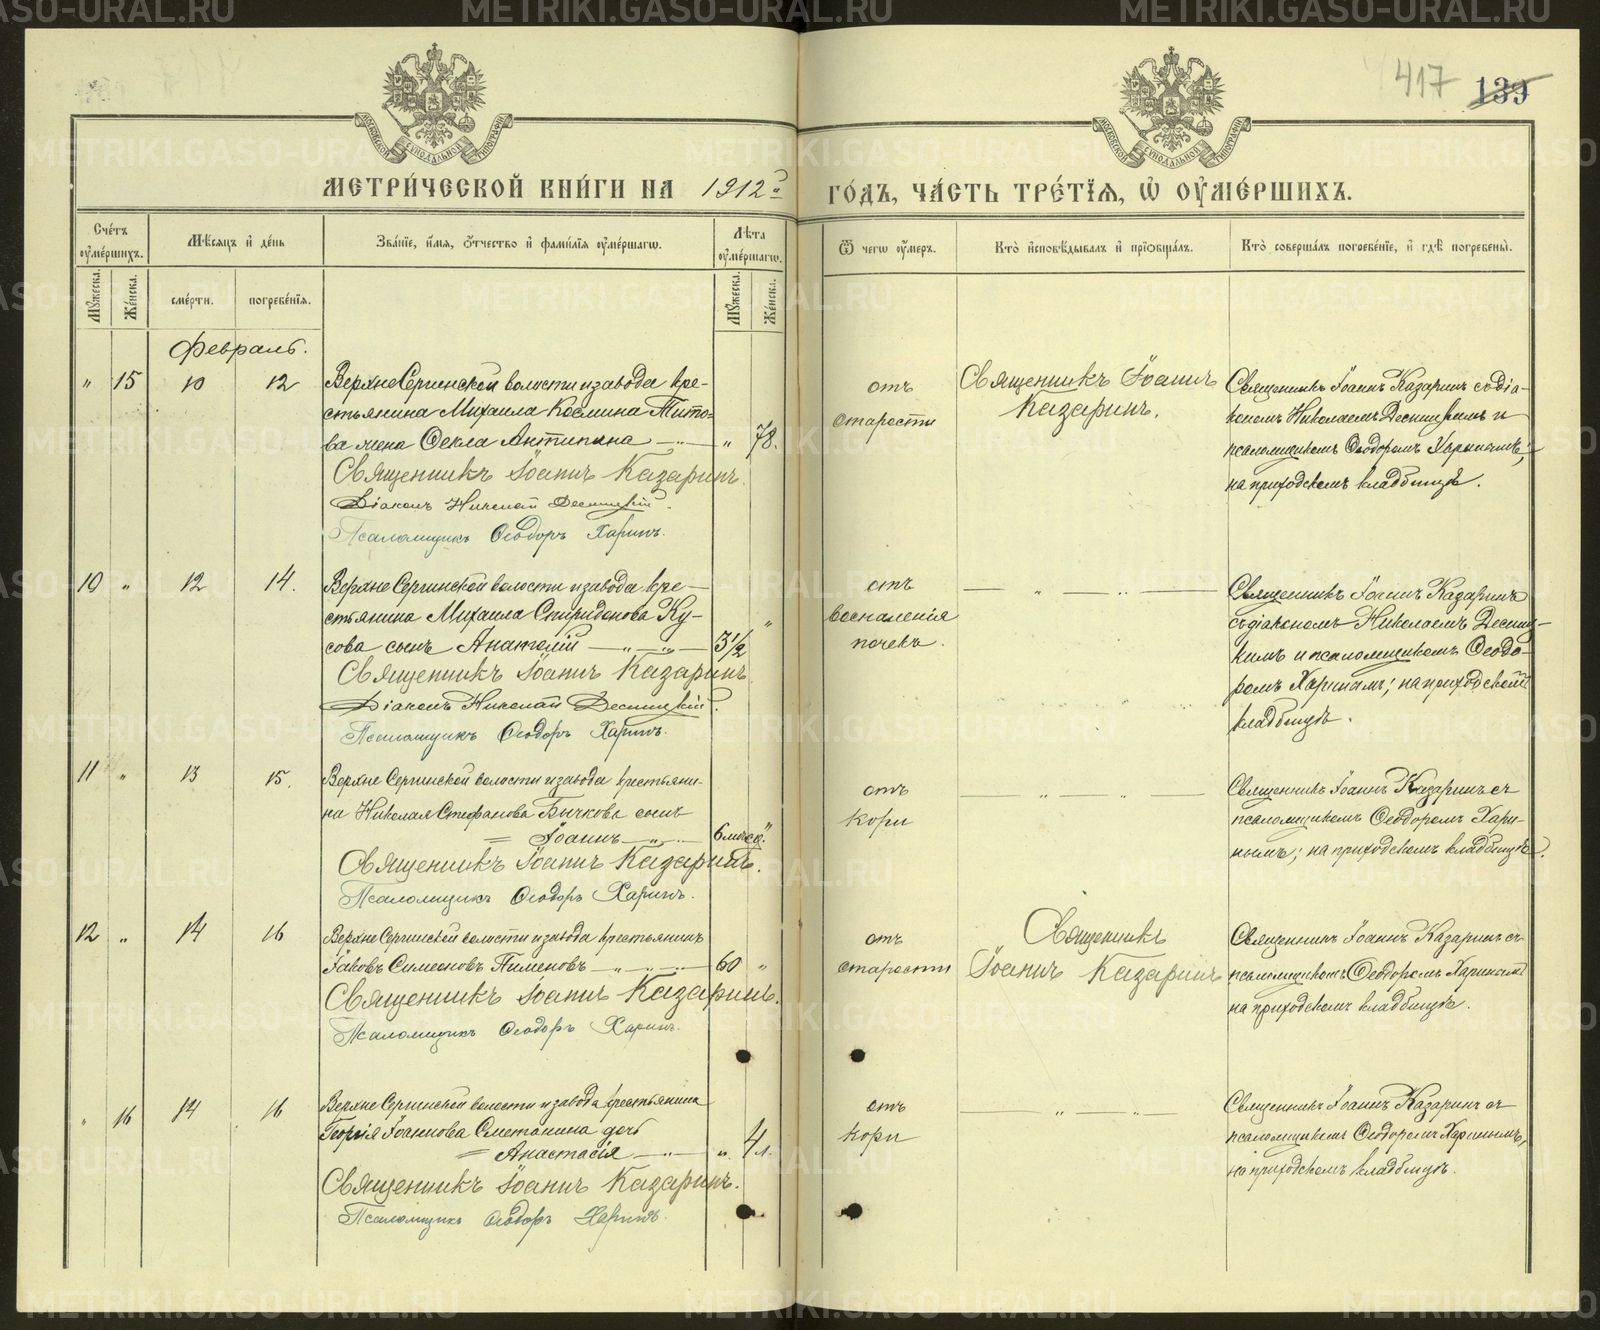 417 139
МЕТРИ́ЧЕСКОЙ КНИ́ГИ НА 1912й ГО́ДЪ, ЧА́СТЬ ТРЕ́ТІѦ, Ѡ ОУ҆МЕ́РШИХЪ.
Сче́тъ оу҆ме́ршихъ.
Мꙋ́жеска.
Же́нска.
Мѣ́сѧцъ и҆ де́нь
сме́рти.
погребе́нїѧ.
Зва́нїе, и҆́мѧ, ѻ҆́тчество и҆ фами́лїѧ оу҆ме́ршагѡ.
Лѣ́та оу҆ме́ршагѡ.
Мꙋ́жеска.
Же́нска.
Ѿ чегѡ̀ оу҆́меръ.
Кто̀ и҆сповѣ́дывалъ и҆ прїѡбща́лъ.
Кто̀ соверша́лъ погребе́нїе, и҆ гдѣ̀ погребены̀.
Февраль.
" 15 10 12
Верхне Сергинской волости и завода кре-
стьянина Михаила Космина Тито-
ва жена Ѳекла Антипина — " — " 78.
Священникъ Іоаннъ Казаринъ.
Діаконъ Николай Десницкій.
Псаломщикъ Ѳеодоръ Харинъ.
отъ
старости
Священникъ Іоаннъ
Казаринъ.
Священникъ Іоаннъ Казаринъ съ діа-
кономъ Николаемъ Десницкимъ и
псаломщикомъ Ѳеодоромъ Харинымъ;
на приходскомъ кладбищѣ.
10 " 12 14.
Верхне Сергинской волости и завода кре-
стьянина Михаила Спиридонова Ку-
сова сынъ Анатолій — " — " — 3½ "
Священникъ Іоаннъ Казаринъ
Діаконъ Николай Десницкій.
Псаломщикъ Ѳеодоръ Харинъ.
отъ
воспаленія
почекъ.
— " — " —
Священникъ Іоаннъ Казаринъ
съ діакономъ Николаемъ Десниц-
кимъ и псаломщикомъ Ѳеодо-
ромъ Харинымъ; на приходскомъ
кладбищѣ.
11 " 13 15.
Верхне Сергинской волости и завода крестьяни-
на Николая Стефанова Бычкова сынъ
= Іоаннъ — " — 6 мѣсяц. "
Священникъ Іоаннъ Казаринъ.
Псаломщикъ Ѳеодоръ Харинъ.
отъ
кори
— " — " —
Священникъ Іоаннъ Казаринъ съ
псаломщикомъ Ѳеодоромъ Хари-
нымъ; на приходскомъ кладбищѣ.
12 " 14 16
Верхне Сергинской волости и завода крестьянинъ
Іаковъ Симеоновъ Пименовъ — " — " — 60 "
Священникъ Іоаннъ Казаринъ.
Псаломщикъ Ѳеодоръ Харинъ.
отъ
старости
Священникъ
Іоаннъ Казаринъ
Священникъ Іоаннъ Казаринъ съ
псаломщикомъ Ѳеодоромъ Харинымъ
на приходскомъ кладбищѣ.
" 16 14 16
Верхне Сергинской волости и завода крестьянина
Георгія Іоаннова Сметанина дочь
= Анастасія — " — " 4 л.
Священникъ Іоаннъ Казаринъ.
Псаломщикъ Ѳеодоръ Харинъ.
отъ
кори
— " — " —
Священникъ Іоаннъ Казаринъ съ
псаломщикомъ Ѳеодоромъ Харинымъ,
на приходскомъ кладбищѣ.